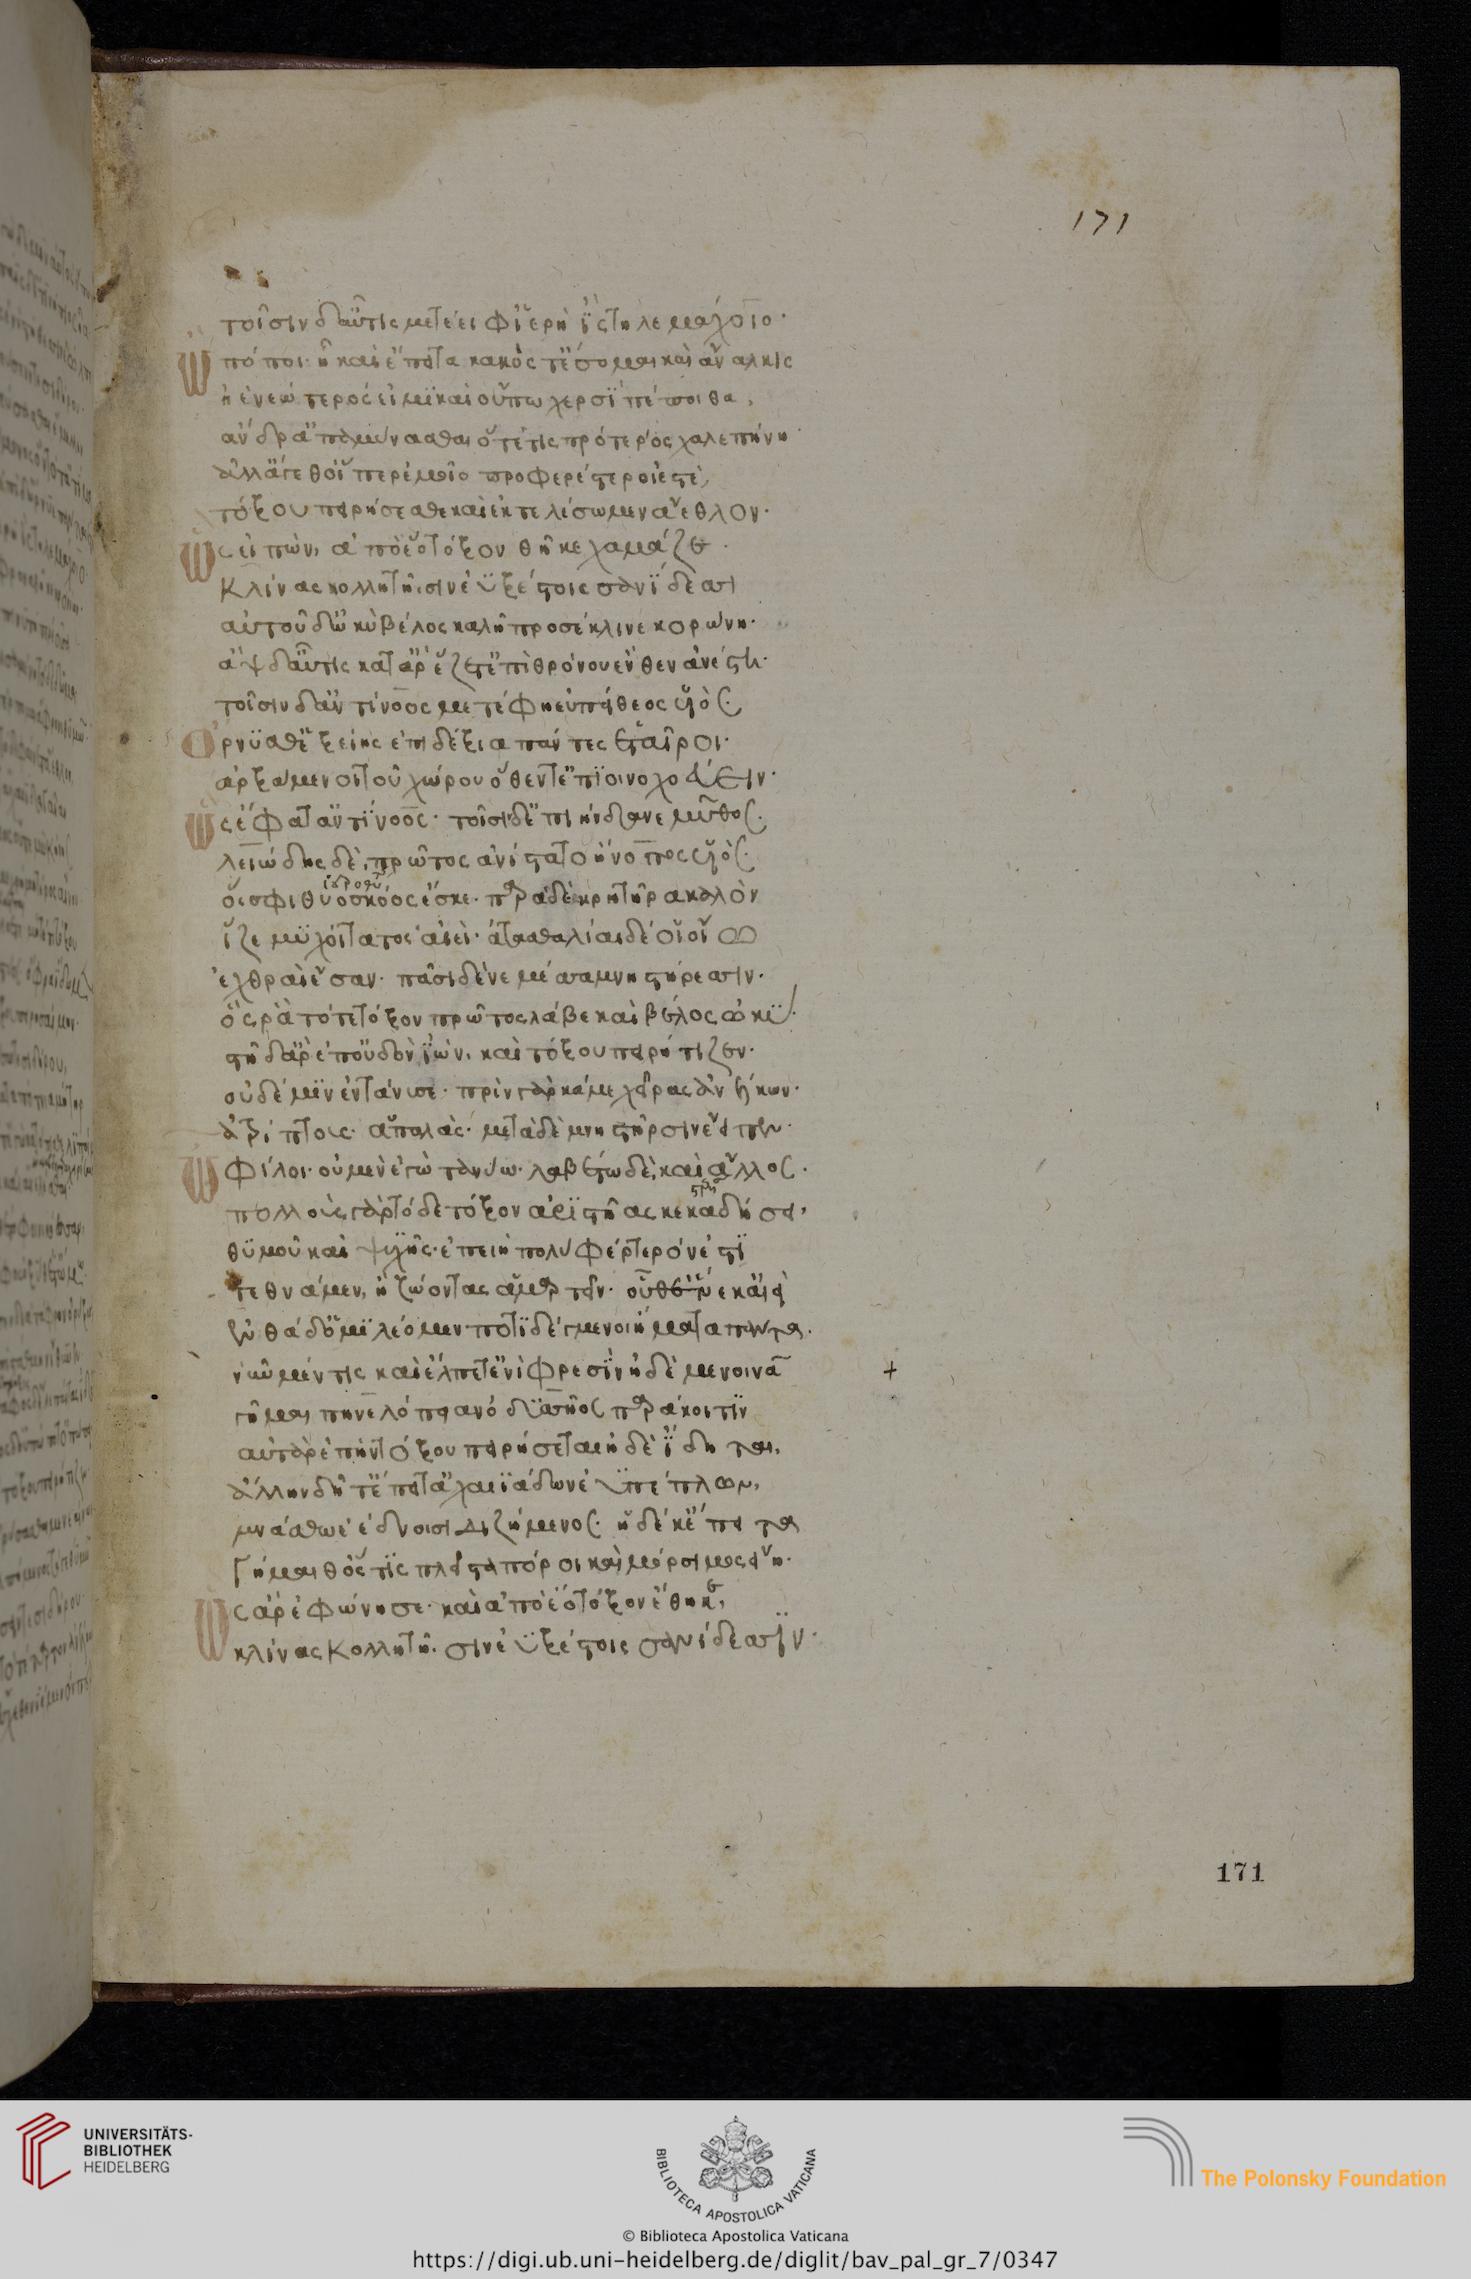 171
τοῖσιν δ' αὖτις μετέειφ' ἱερὴ ἲς τηλεμάχοιο·
ὢ πόποι· ἦ καὶ ἔπειτα κακός τ' ἔσομαι καὶ ἄναλκις
ἠὲ νεώτερός εἰμι καὶ οὔπω χερσὶ πέποιθα,
ἄνδρ' ἀπαμύνασθαι ὅτε τις πρότερος χαλεπήνῃ·
ἀλλ' ἄγεθ' οἵπερ ἐμοῖο προφερέστεροί ἐστὲ,
τόξου πειρήσεσθε καὶ ἐκτελέσωμεν ἄεθλον·
ὣς εἰπὼν, ἀπὸ ἕο τόξον θῆκε χαμᾶζε·
κλίνας κολλητῇσιν ἐϋξέστοις σανίδεσσι
αὐτοῦ δ' ὠκὺ βέλος καλῇ προσέκλινε κορώνῃ·
ἂψ δ' αὖτις κατ' ἄρ' ἕζετ' ἐπὶ θρόνου ἔνθεν ἀνέστη·
τοῖσιν δ' ἀντίνοος μετέφη εὐπείθεος υἱὸς·
ὄρνυσθ' ἑξείης ἐπιδέξια πάντες ἑταῖροι·
ἀρξάμενοι τοῦ χώρου ὅθεν τ' ἐπιοινοχοεύειν·
ὣς ἔφατ' ἀντίνοος· τοῖσι δ' ἐπιήνδανε μῦθος·
λειώδης δὲ πρῶτος ἀνίστατο ἤνοπος υἱὸς·
ὅ σφι θυοσκόος ἔσκε· παρὰ δὲ κρητῆρα καλὸν
ἷζε μυχοίτατος αἰεὶ· ἀτασθαλίαι δέ οἱ οἴῳ
ἐχθραὶ ἔσαν· πᾶσι δὲ νεμέσσα μνηστήρεσσιν·
ὅς ῥα τότε τόξον πρῶτος λάβε καὶ βέλος ὠκύ·
στῆ δ' ἄρ' ἐπ' οὐδὸν ἰὼν, καὶ τόξου πειρήτιζεν·
οὐδέ μιν ἐντάνυσε· πρὶν γὰρ κάμε χεῖρας ἀνέλκων·
ἀτρίπτους· ἁπαλὰς· μετὰ δὲ μνηστῆρσιν ἔειπεν·
ὦ φίλοι· οὐ μὲν ἐγὼ τανύω· λαβέτω δὲ καὶ ἄλλος·
πολλοὺς γὰρ τόδε τόξον ἀριστῆας κεκαδήσει,
θυμοῦ καὶ ψυχῆς· ἐπειὴ πολὺ φέρτερόν ἐστι
τεθνάμεν, ἢ ζώοντας ἁμαρτεῖν· οὗθ' εἵνεκ' αἰεὶ
ἐνθάδ' ὁμιλέομεν ποτιδέγμενοι ἤματα πάντα·
νῦν μέν τις καὶ ἔλπετ' ἐνὶ φρεσὶν ἠδὲ μενοινᾷ
+
γῆμαι πηνελόπειαν ὀδυσσῆος παράκοιτιν
αὐτὰρ ἐπὴν τόξου πειρήσεται ἠδὲ ἴδηται,
ἄλλην δή τ' ἔπειτα ἀχαιϊάδων ἐϋπέπλων,
μνάσθω ἐέδνοισι διζήμενος· ἡ δέ κ' ἔπειτα
γήμαιθ' ὅς τις πλεῖστα πόροι καὶ μόρσιμος εἴη·
ὣς ἄρ' ἐφώνησε· καὶ ἀπὸ ἕο τόξον ἔθηκε,
κλίνας κολλητῇσιν ἐϋξέστοις σανίδεσσιν·
171
UNIVERSITÄTS-
BIBLIOTHEK
HEIDELBERG
BIBLIOTECA APOSTOLICA VATICANA
The Polonsky Foundation
© Biblioteca Apostolica Vaticana
https://digi.ub.uni-heidelberg.de/diglit/bav_pal_gr_7/0347